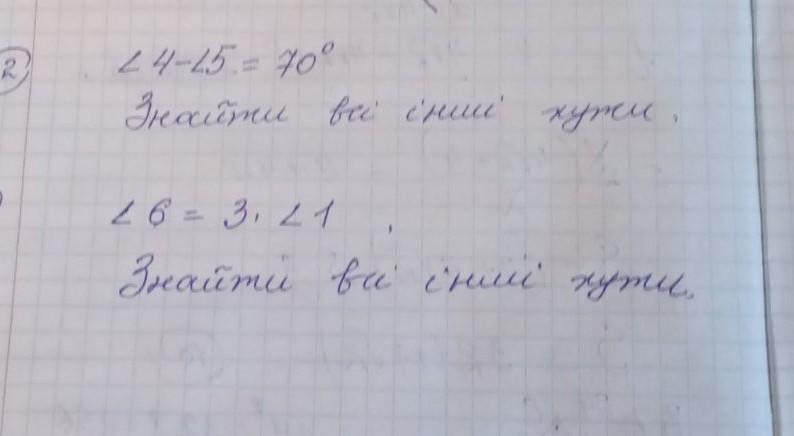 2
∠4-∠5 = 70°
Знайти всі інші кути.
∠6 = 3·∠1,
Знайти всі інші кути.